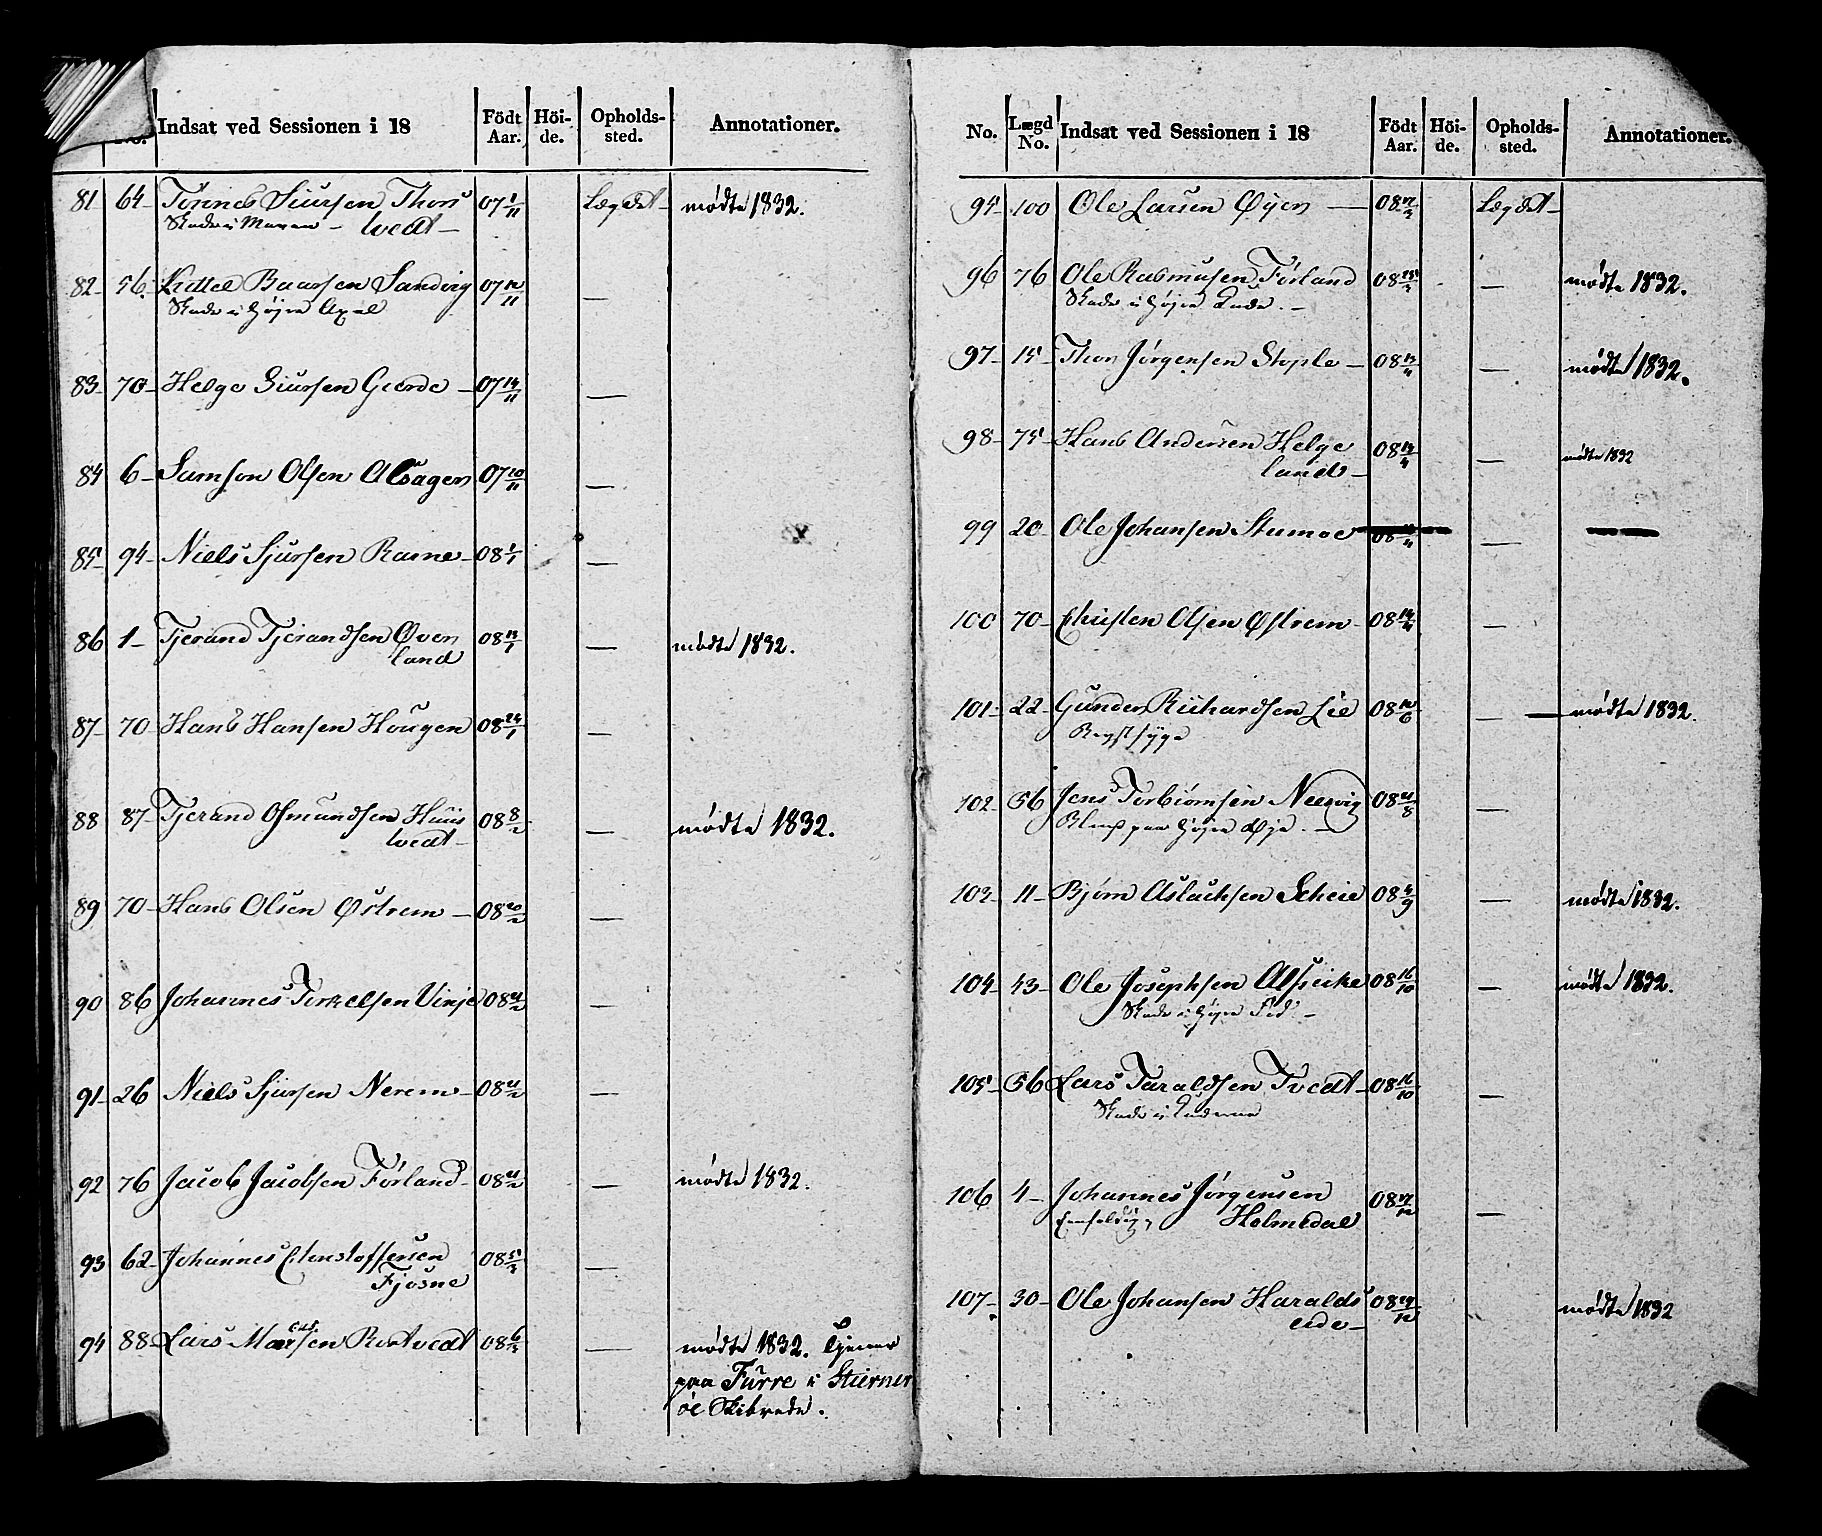 No. Indsat ved Sessionen i 18 Födt Aar. Höi-de. Opholds-sted. Annotationer.
81 64 Tønnes Siursen Thors 07 1/11 Lægdet mødte 1832.
Skade i Maven tvedt
82 56 Kittel Baarsen Sandvig 07 12/11 —
Skade i høyre Axel
83 70 Helge Siursen Gierde 07 14/11 —
84 6 Samson Olsen Alsagen 07 20/11 —
85 94 Niels Sjursen Rame 08 1/1 —
86 1 Tjerand Tjerandsen Øven 08 13/1 — mødte 1832.
land
87 70 Hans Hansen Hougen 08 24/1 —
88 87 Tjerand Osmundsen Huus 08 8/2 — mødte 1832.
tvedt
89 70 Hans Olsen Østrem 08 20/2 —
90 86 Johannes Torkelsen Vinje 08 21/2 —
91 26 Niels Sjursen Nerem 08 21/2 —
92 76 Jacob Jacobsen Førland 08 21/2 — mødte 1832.
93 62 Johannes Christoffersen 08 5/3 —
Fjøsne
94 88 Lars Larsen 08 6/3 — mødte 1832. tjener
paa Furre i Stierner
øe Skibrede.
No. Lægd No. Indsat ved Sessionen i 18 Födt Aar. Höi-de. Opholds-sted. Annotationer.
95 100 Ole Larsen Øyen 08 Lægdet
96 76 Ole Rasmusen Førland 08 — mødte 1832.
Skade i høyre
97 15 Thor Jørgensen Stople 08 13/4 — mødte 1832.
98 75 Hans Andersen Helge 08 13/4 — mødte 1832
land
99 20 Ole Johansen Stumoe 08 —
100 70 Christen Olsen Østrem 08 14/4 —
101 22 Gunder Richardsen Lie 08 — mødte 1832.
Brystsyge
102 56 Jens Torbiørnsen Neesvig 08 21/8 —
Blind paa høyre Øje.
103 11 Bjørn Aslachsen Scheie 08 — mødte 1832.
104 43 Ole Josephsen Alsvike 08 16/10 — mødte 1832.
Skade i høyre Fod
105 56 Lars Taraldsen Tvedt 08 16/10 —
Skade i
106 4 Johannes Jørgensen 08 —
Eenfoldig, Holmedal
107 30 Ole Johansen Haralds 08 29/12 mødte 1832
eide